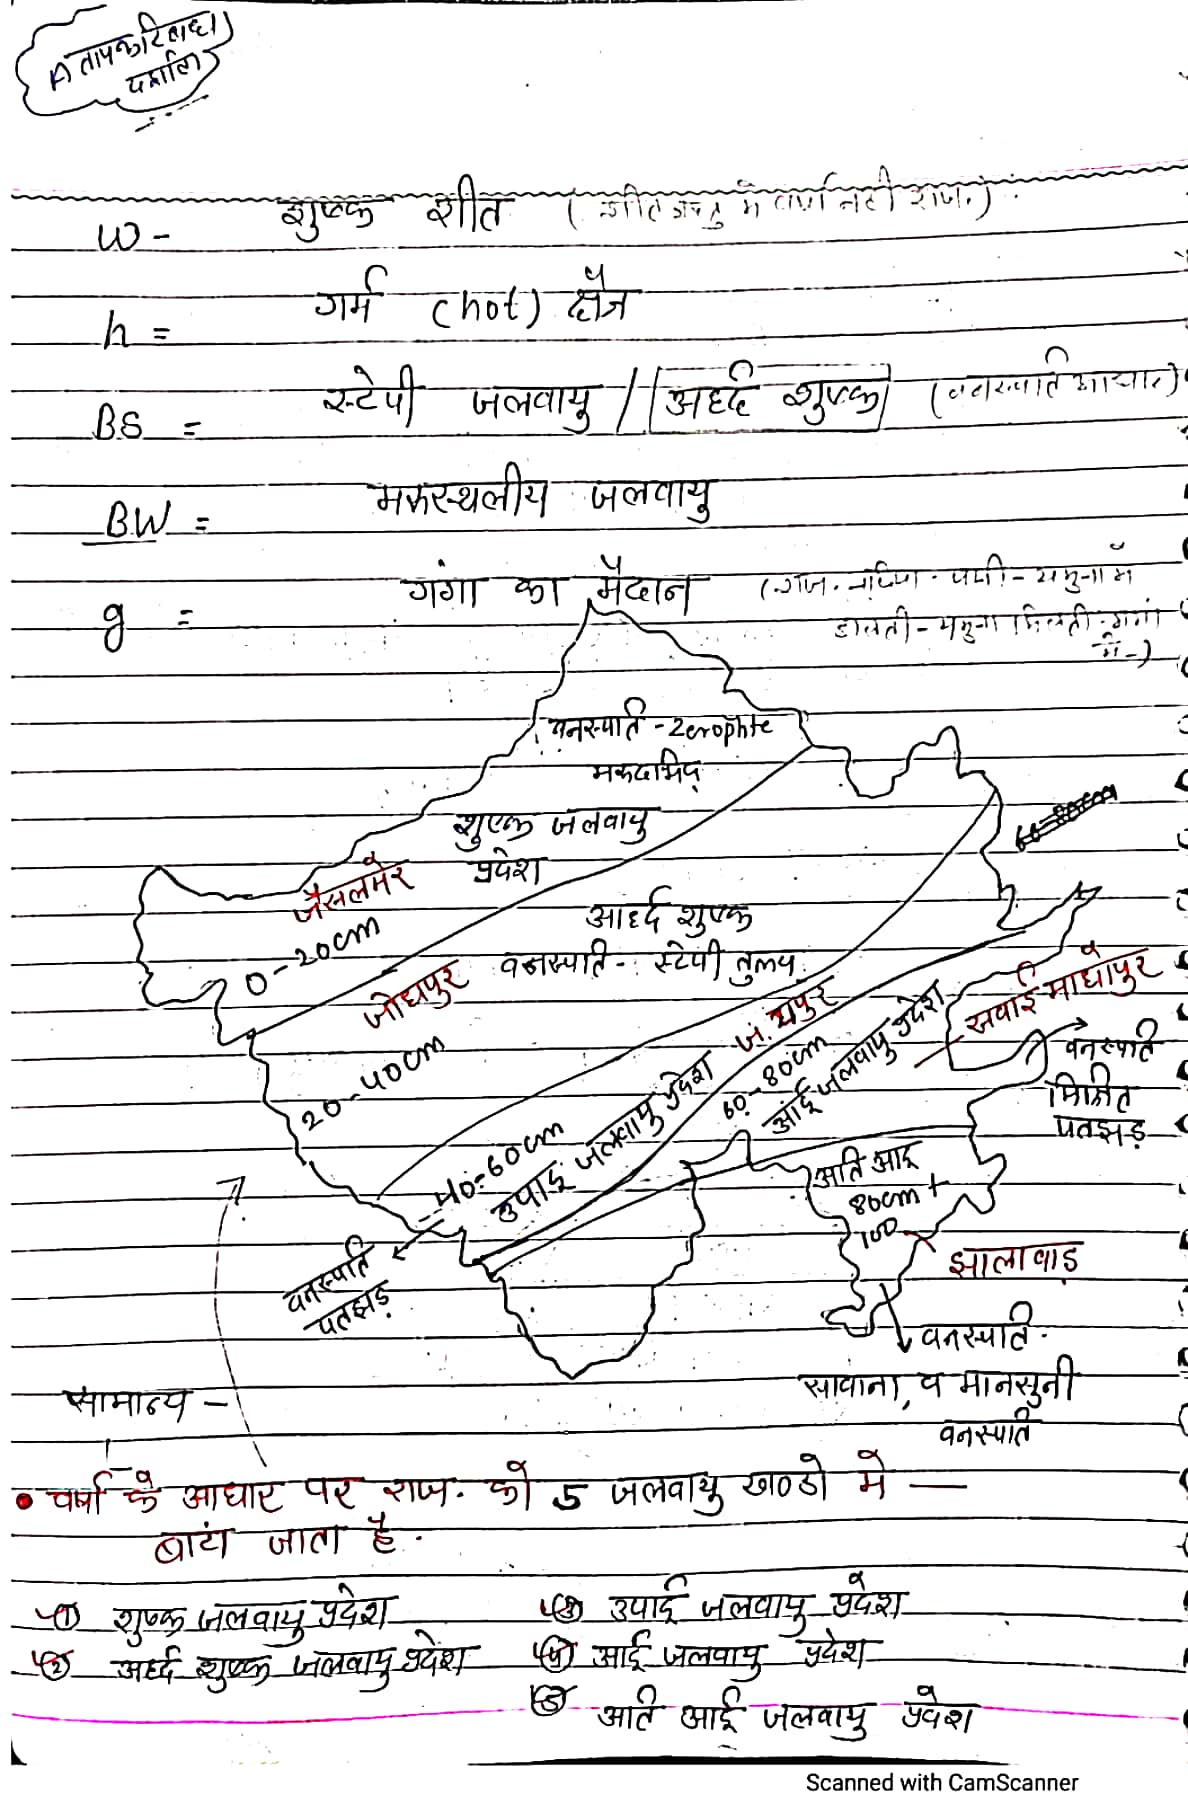 A
W - शुष्क शीत (शीत ऋतु में वर्षा नही राज.)
h = गर्म (hot) क्षेत्र
BS = स्टेपी जलवायु / अर्ध्द शुष्क (वनस्पति आधार)
BW = मरुस्थलीय जलवायु
g = गंगा का मैदान (राज. नदियां - यमुना में
डालती - यमुना मिलती गंगा
में -)
वनस्पति - Zerophte
मरुदभिद्
शुष्क जलवायु
प्रदेश
जैसलमेर
0-20cm
आर्ध्द शुष्क
वनस्पति - स्टेपी तुल्य
जोधपुर
20-40cm
जयपुर
40-60cm
उपार्द्र जलवायु प्रदेश
60-80cm
आर्द्र जलवायु प्रदेश
सवाई माधोपुर
वनस्पति
मिश्रित
पतझड़
अति आर्द्र
80cm +
100
झालावाड़
वनस्पति
पतझड़
वनस्पति
सावाना, व मानसुनी
वनस्पति
सामान्य -
• वर्षा के आधार पर राज. को 5 जलवायु खण्डो मे —
बाटां जाता है.
① शुष्क जलवायु प्रदेश
② अर्ध्द शुष्क जलवायु प्रदेश
③ उपार्द्र जलवायु प्रदेश
④ आर्द्र जलवायु प्रदेश
⑤ अति आर्द्र जलवायु प्रदेश
Scanned with CamScanner